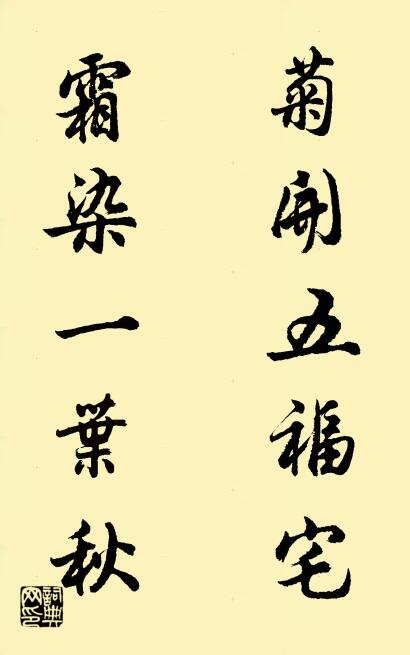 菊開五福宅
霜染一葉秋
詞典網印